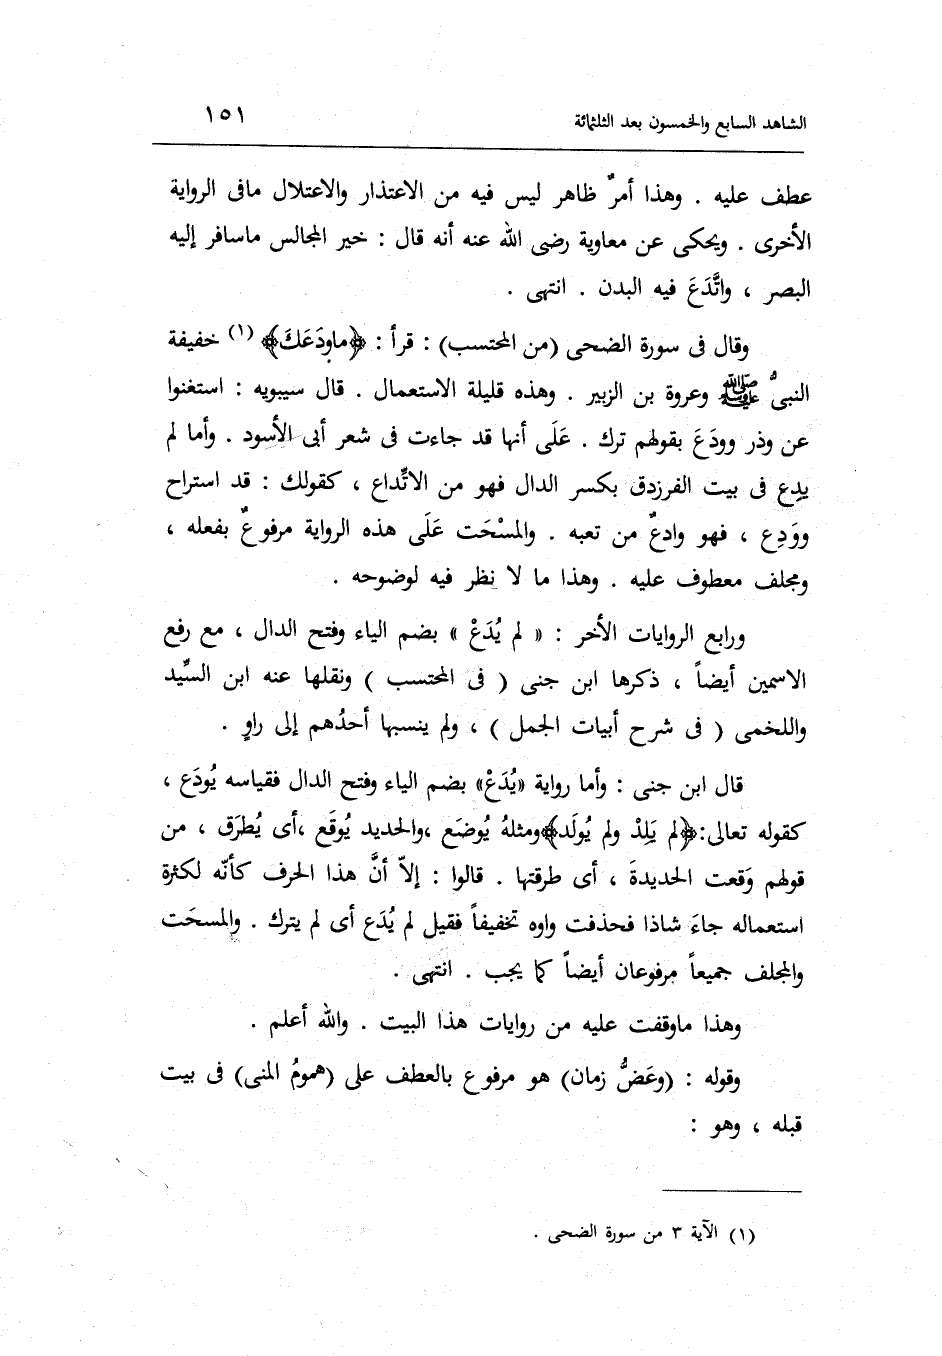 الشاهد السابع والخمسون بعد الثلثمائة ١٥١
عطف عليه . وهذا أمرٌ ظاهر ليس فيه من الاعتذار والاعتلال مافى الرواية
الأخرى . ويحكى عن معاوية رضى الله عنه أنه قال : خير المجالس ماسافر إليه
البصر ، واتَّدَعَ فيه البدن . انتهى .
وقال فى سورة الضحى (من المحتسب) : قرأ : ﴿ماودَعَكَ﴾ (١) خفيفة
النبىُّ ﷺ وعروة بن الزبير . وهذه قليلة الاستعمال . قال سيبويه : استغنوا
عن وذر وودَعَ بقولهم ترك . عَلَى أنها قد جاءت فى شعر أبى الأسود . وأما لم
يدِع فى بيت الفرزدق بكسر الدال فهو من الاتِّداع ، كقولك : قد استراح
ووَدِع ، فهو وادعٌ من تعبه . والمسْحَت عَلَى هذه الرواية مرفوعٌ بفعله ،
ومجلف معطوف عليه . وهذا ما لا نظر فيه لوضوحه .
ورابع الروايات الأخر : « لم يُدَعْ » بضم الياء وفتح الدال ، مع رفع
الاسمين أيضاً ، ذكرها ابن جنى ( فى المحتسب ) ونقلها عنه ابن السِّيد
واللخمى ( فى شرح أبيات الجمل ) ، ولم ينسبها أحدُهم إلى راوٍ .
قال ابن جنى : وأما رواية «يُدَعْ» بضم الياء وفتح الدال فقياسه يُودَع ،
كقوله تعالى:﴿لم يَلِدْ ولم يُولَد﴾ومثلهُ يُوضَع ،والحديد يُوقَع ،أى يُطرَق ، من
قولهم وَقعت الحديدةَ ، أى طرقتها . قالوا : إلاّ أنَّ هذا الحرف كأنّه لكثرة
استعماله جاءَ شاذا فحذفت واوه تخفيفاً فقيل لم يُدَع أى لم يترك . والمسحَت
والمجلف جميعاً مرفوعان أيضاً كما يجب . انتهى .
وهذا ماوقفت عليه من روايات هذا البيت . والله أعلم .
وقوله : (وعَضُّ زمان) هو مرفوع بالعطف على (همومُ المنى) فى بيت
قبله ، وهو :
(١) الآية ٣ من سورة الضحى .